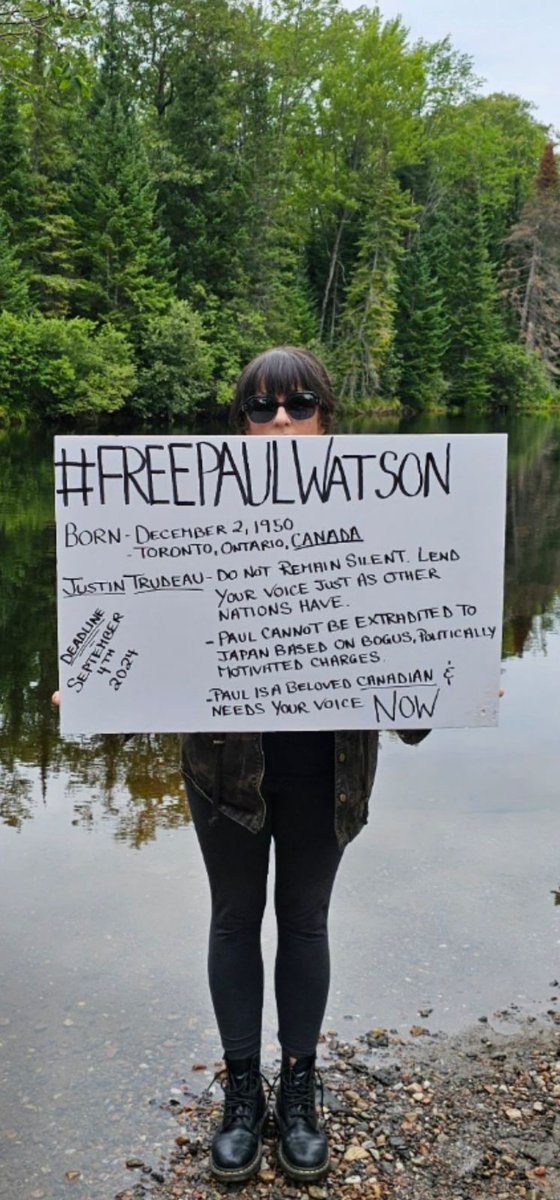 #FREEPAULWATSON
BORN - DECEMBER 2, 1950
- TORONTO, ONTARIO, CANADA
JUSTIN TRUDEAU - DO NOT REMAIN SILENT. LEND
YOUR VOICE JUST AS OTHER
NATIONS HAVE.
DEADLINE
SEPTEMBER
4TH
2024
- PAUL CANNOT BE EXTRADITED TO
JAPAN BASED ON BOGUS, POLITICALLY
MOTIVATTED CHARGES.
- PAUL IS A BELOVED CANADIAN &
NEEDS YOUR VOICE NOW